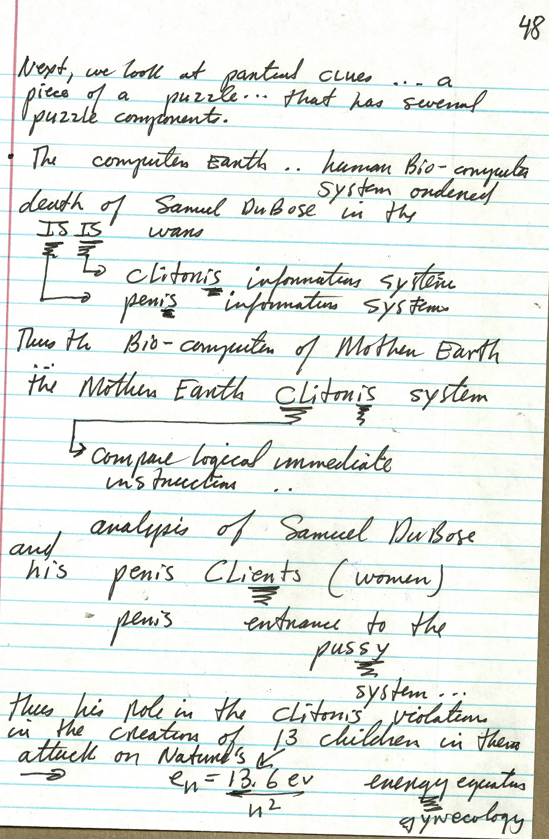 48
Next, we look at partial clues ... a
piece of a puzzle... that has several
puzzle components.
. The computer Earth .. human Bio-computer
system ordered
death of Samuel DuBose in the
IS IS wars
clitoris information system
penis information system
Thus the Bio-computer of Mother Earth
...
the Mother Earth CLitoris system
compare logical immediate
instruction ..
analysis of Samuel DuBose
and
his penis CLients (women)
penis entrance to the
pussy
system ...
thus his role in the clitoris violation
in the creation of 13 children in their
attack on Nature's
en = 13.6 ev energy equation
n2
gynecology